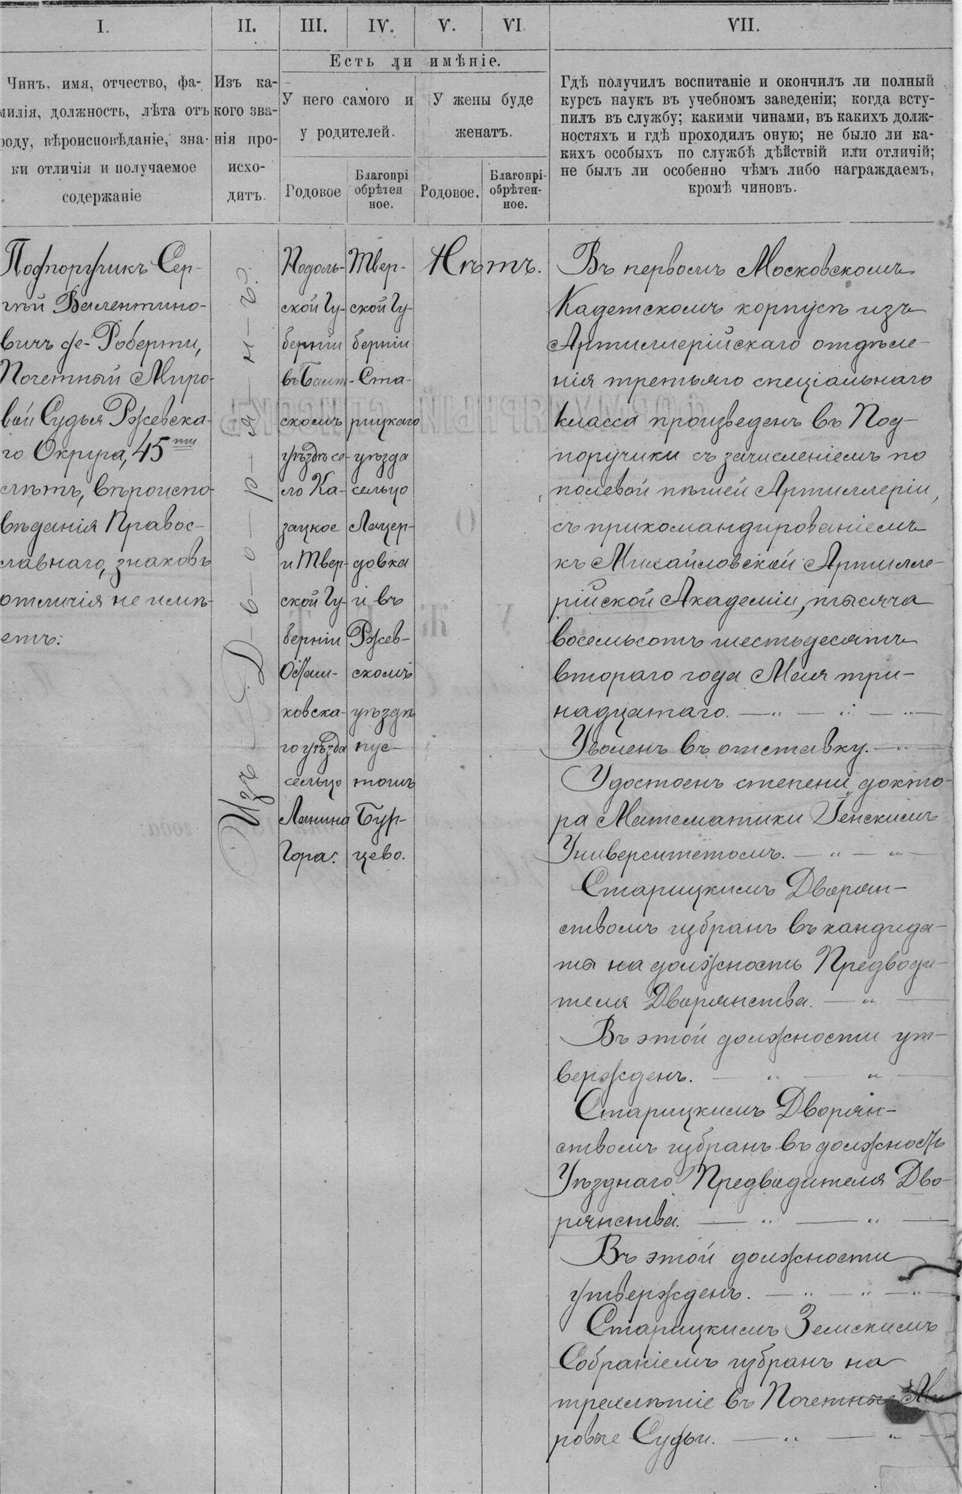 I.
II.
III.
IV.
V.
VI
VII.
Есть ли имѣніе.
Чинъ, имя, отчество, фа-
милія, должность, лѣта отъ
роду, вѣроисповѣданіе, зна-
ки отличія и получаемое
содержаніе
Изъ ка-
кого зва-
нія про-
исхо-
дитъ.
У него самого и
у родителей.
У жены буде
женатъ.
Родовое
Благопрі
обрѣтен
ное.
Родовое.
Благопрі-
обрѣтен-
ное.
Гдѣ получилъ воспитаніе и окончилъ ли полный
курсъ наукъ въ учебномъ заведеніи; когда всту-
пилъ въ службу; какими чинами, въ какихъ долж-
ностяхъ и гдѣ проходилъ оную; не было ли ка-
кихъ особыхъ по службѣ дѣйствій или отличій;
не былъ ли особенно чѣмъ либо награждаемъ,
кромѣ чиновъ.
Подпоручикъ Сер-
гѣй Валентино-
вичъ де-Роберти,
Почетный Миро-
вой Судья Ржевска-
го Округа, 45ти
лѣтъ, вѣроиспо-
вѣданія Правос-
лавнаго, знаковъ
отличія не имѣ-
етъ:
Изъ Д-в-о-р-я-н-ъ.
Подоль-
ской Гу-
берніи
въ Балт-
скомъ
уѣздѣ се-
ло Ка-
зацкое
и Твер-
ской Гу-
берніи
Осташ-
ковска-
го уѣзда
сельцо
Ланина
Гора.
Твер-
ской Гу-
берніи
Ста-
рицкаго
уѣзда
сельцо
Лацер-
довка
и въ
Ржев-
скомъ
уѣздѣ
пус-
тошь
Бур-
цево.
Нѣтъ.
Въ первомъ Московскомъ
Кадетскомъ корпусѣ изъ
Артиллерійскаго отдѣле-
нія третьяго спеціальнаго
класса произведенъ въ Под-
поручики съ зачисленіемъ по
полевой пѣшей Артиллеріи,
съ прикомандированіемъ
къ Михайловской Артилле-
рійской Академіи, тысяча
восемьсотъ шестьдесятъ
втораго года Мая три-
надцатаго. — „ — „ —
Уволенъ въ отставку. — „ —
Удостоенъ степени докто-
ра Математики Іенскимъ
Университетомъ. — „ — „ —
Старицкимъ Дворян-
ствомъ избранъ въ кандида-
ты на должность Предводи-
теля Дворянства. — „ —
Въ этой должности ут-
вержденъ. — „ — „ —
Старицкимъ Дворян-
ствомъ избранъ въ должность
Уѣзднаго Предводителя Дво-
рянства. — „ — „ —
Въ этой должности
утвержденъ. — „ — „ — „ —
Старицкимъ Земскимъ
Собраніемъ избранъ на
трехлѣтіе въ Почетные Ми-
ровые Судьи. — „ — „ —